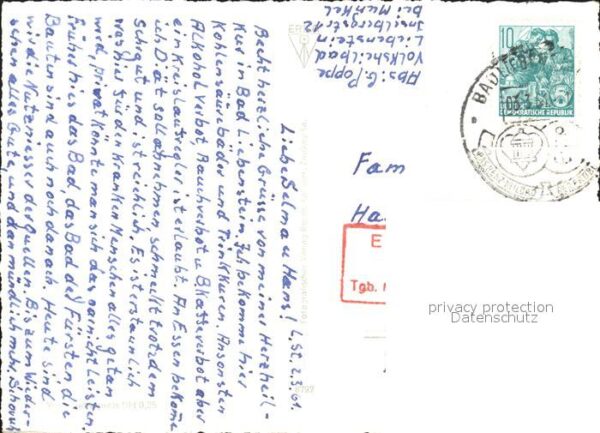 Abs: G. Poppe
Volksheilbad
Liebenstein
Inselbergstr 12
bei Munkel
Liebe Selma u Hans! L. St. 2.3.61.
Recht herzliche Grüsse von meiner Herzheil-
Kur in Bad Liebenstein. Ich bekomme hier
Kohlensäurebäder und Trinkkuren. Ansonsten
Alkoholverbot, Rauchverbot u Kaffeeverbot aber
ein Kreislaufregler ist erlaubt. An Essen bekomme
ich Diät soll abnehmen, schmeckt trotzdem
sehr gut und ist reichlich. Es ist erstaunlich
was hier für die Kranken Menschen alles getan
wird, Privat könnte man sich das gar nicht leisten.
Früher hies das Bad, das Bad der Fürsten, die
Bauten sind auch noch danach. Heute sind
wir die Nutzniesser der Quellen. Bis zum Wieder-
sehen alles Gute
10
DEUTSCHE DEMOKRATISCHE REPUBLIK
BAD LIEBENSTEIN
Fam
Ha
E
Tgb.
8792
0,25
privacy protection
Datenschutz